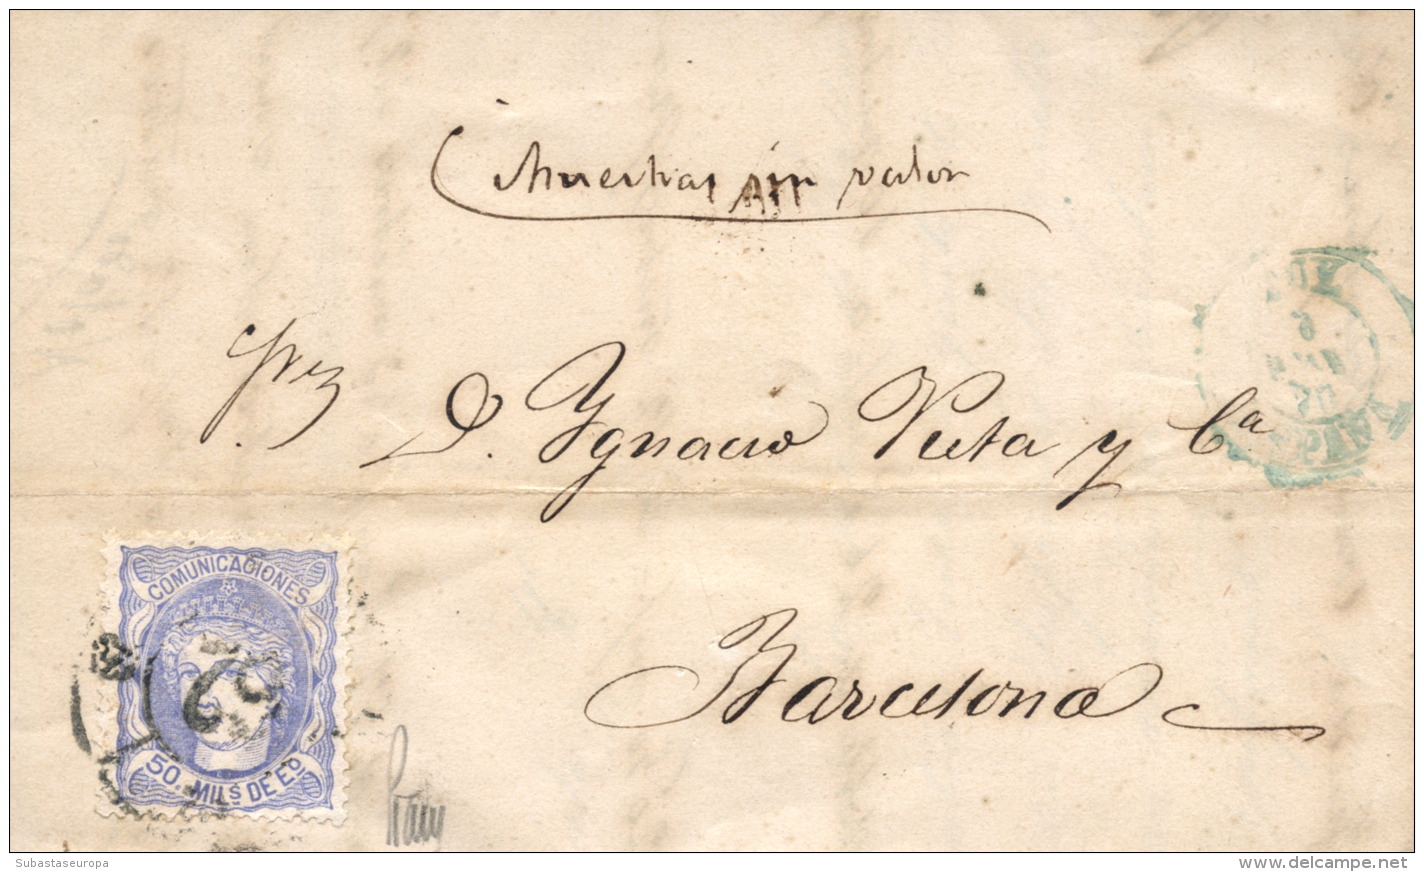 Muestras sin valor
Srez
D. Ygnacio Vieta y Ca
COMUNICACIONES
50. MILS DE EO
Barcelona
Subastaseuropa
www.delcampe.net